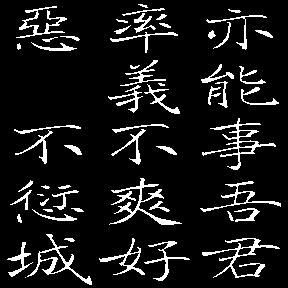 亦能事吾君
率義不爽好
惡不愆城